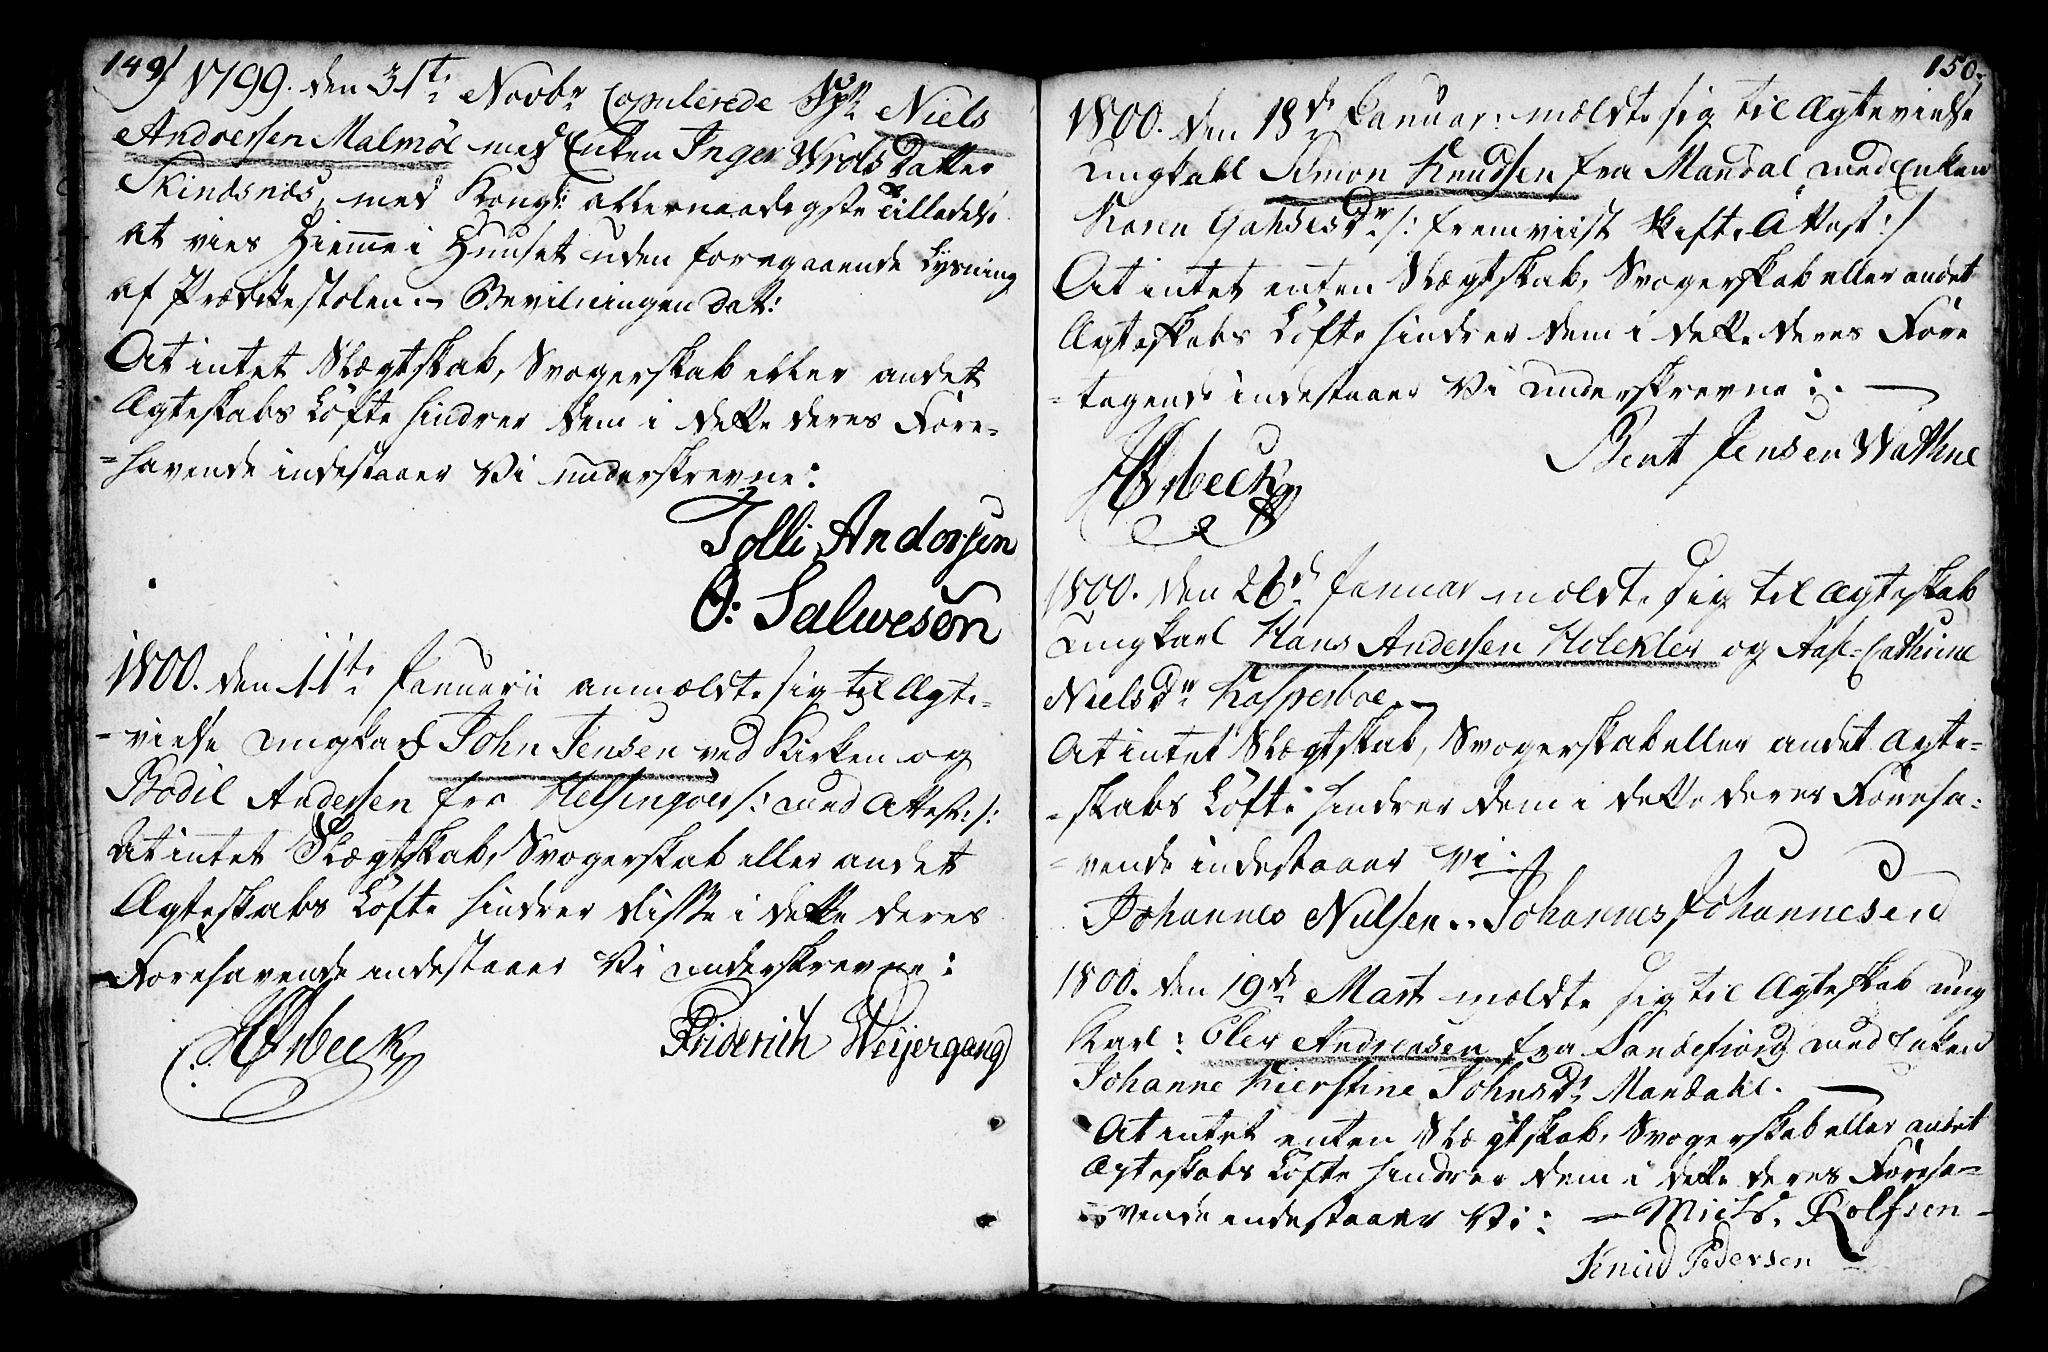 149/
1799. den 31te Novbr Copulerede Niels
Andersen Malmöe med Enken Inger Wrolsdatter
Skindsnæs, med Kongl: allernaadigste Tilladelse
at vies Hiemme i Huuset uden foregaaende Lysning
af Prædikestolen. Bevilningen dat:
At intet Slægtskab, Svogerskab eller andet
Ægteskabs Löfte hindrer dem i dette deres Fore-
=havende indestaaer Vi underskrevne:
Tolli Andersen
O: Salwesen
1800. den 11te Januarii anmældte sig til Ægte-
-vielse Ungkarl John Jensen ved Kirken og
Bodil Andersen fra Helsingöer /: med Attest :/:
At intet Slægtskab, Svogerskab eller andet
Ægteskabs Löfte hindrer disse i dette deres
Forehavende indestaaer Vi underskrevne:
HÖrbeck Friderich Weijergang
150.
1800. den 18de Januar: mældte sig til Ægtevielse
Ungkarl Simon Knudsen fra Mandal med Enken
Karen Dr /: fremviist Skifte Attest :/
At intet enten Slægtskab, Svogerskab eller andet
Ægteskabs Löfte hindrer dem i dette deres Fore
=tagende indestaaer Vi underskrevne:
Bent Jensen Wathne
HÖrbeck
1800. den 26d Januar mældte sig til Ægteskab
Ungkarl Hans Andersen Holekler og Aase Cathrine
Niels Dr Kasperboe.
At intet Slægtskab, Svogerskab eller andet Ægte=
=skabs Löfte hindrer dem i dette deres Foreha=
=vende indestaaer Vi:
Johannes Nielsen. Johannes Johannesen
1800. den 19de Marts mældte sig til Ægteskab ung
Karl: Oler Andreasen fra Sandefiord med Enken
Johanne Kierstine Johns Dr Mandahl.
At intet enten Slægtskab, Svogerskab eller andet
Ægteskabs Löfte hindrer dem i dette deres Foreha=
=vende indestaaer Vi: Mich. Rolfsen
Knud Pedersen